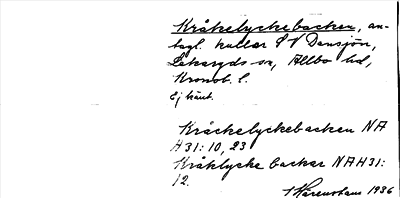 Kråkelyckebacken, an-
tagl. kullar S V Dansjön,
Lekaryds sn, Allbo hd,
Kronob. l.
Ej känt.
Kråckelyckebacken NA
H31: 10, 23
Kråklycke backar NAH31:
12.
1936